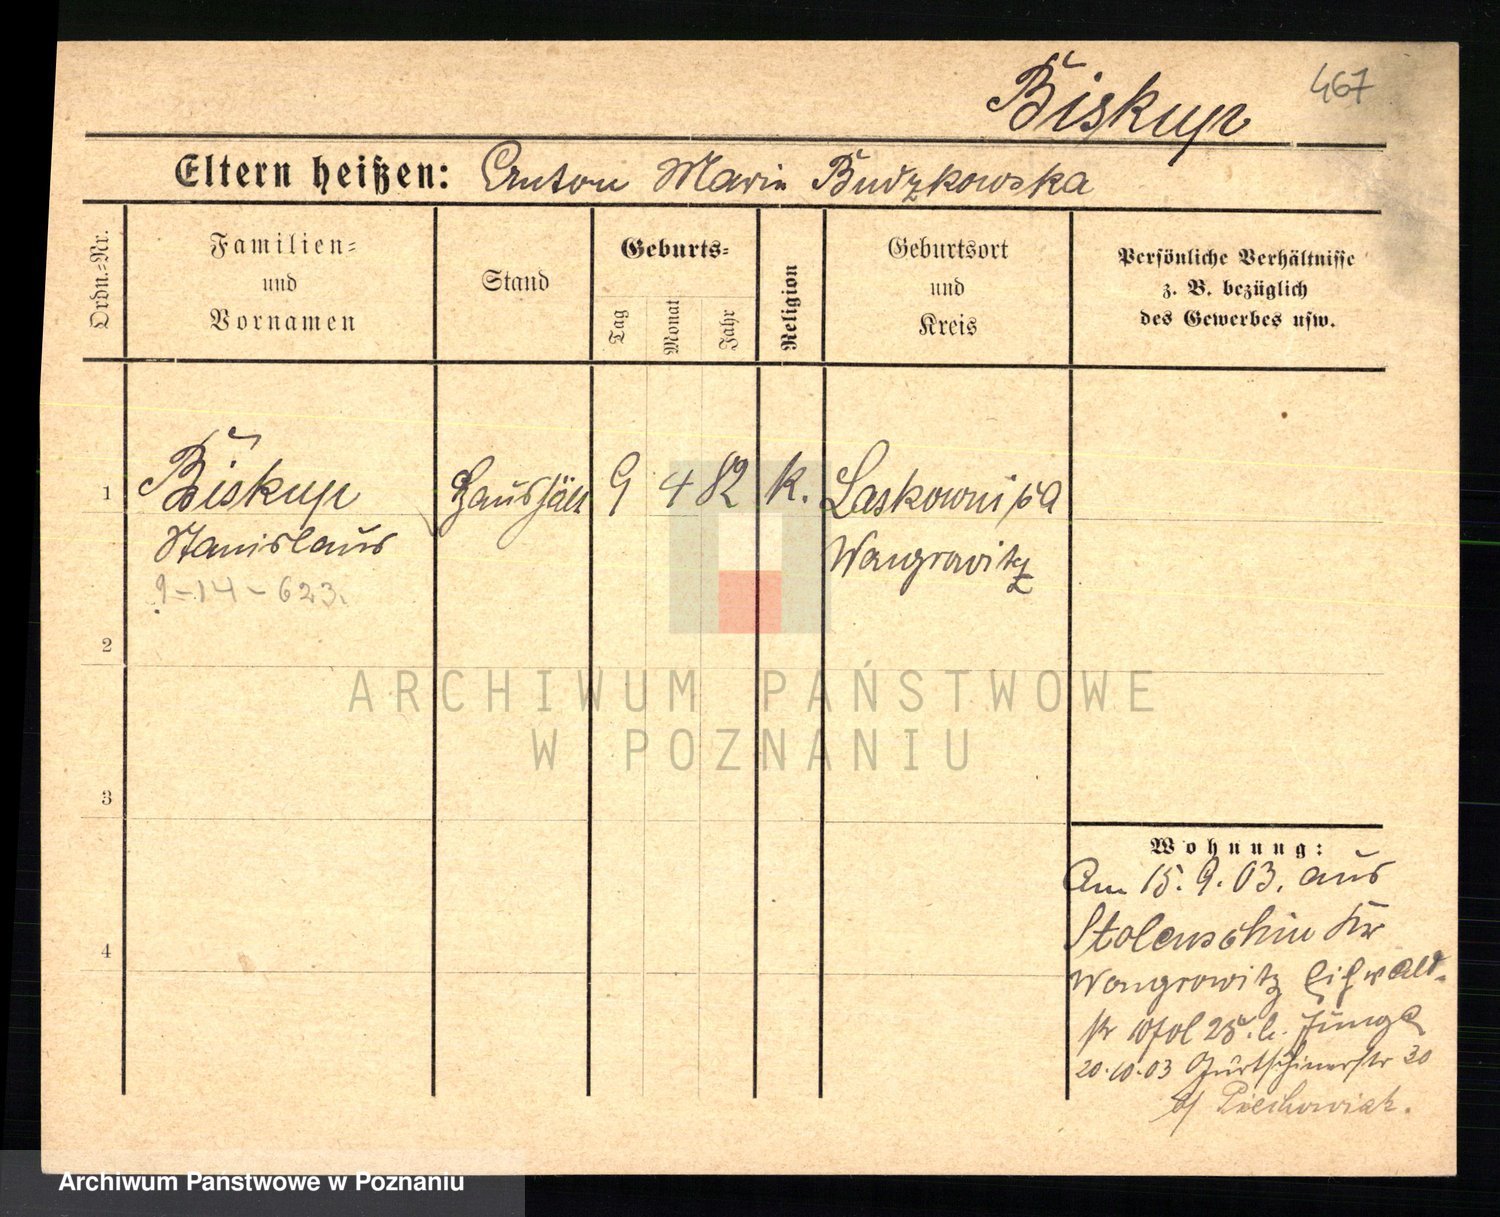 Biskup
467
Eltern heißen: Anton Marie Budzkowska
Ordn.-Nr.
Familien-
und
Vornamen
Stand
Geburts-
Tag
Monat
Jahr
Religion
Geburtsort
und
Kreis
Persönliche Verhältnisse
z. B. bezüglich
des Gewerbes usw.
1
Biskup
Stanislaus
9-14-623.
Haushält
9 4 82
k.
Laskowni
Wongrowitz
2
ARCHIWUM PAŃSTWOWE
W POZNANIU
3
4
Wohnung:
Am 15.9.03. aus
Stolenschin Kr
Wongrowitz Eichwald-
str 25 b. Junge
20.10.03 Gurtschinerstr 30
b/ Piechowiak.
Archiwum Państwowe w Poznaniu